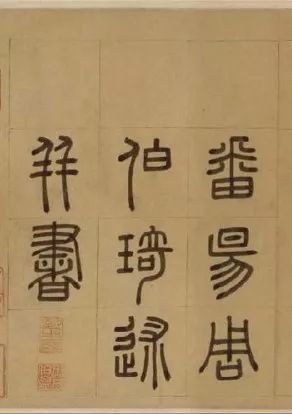 番昜周
伯琦述
并書